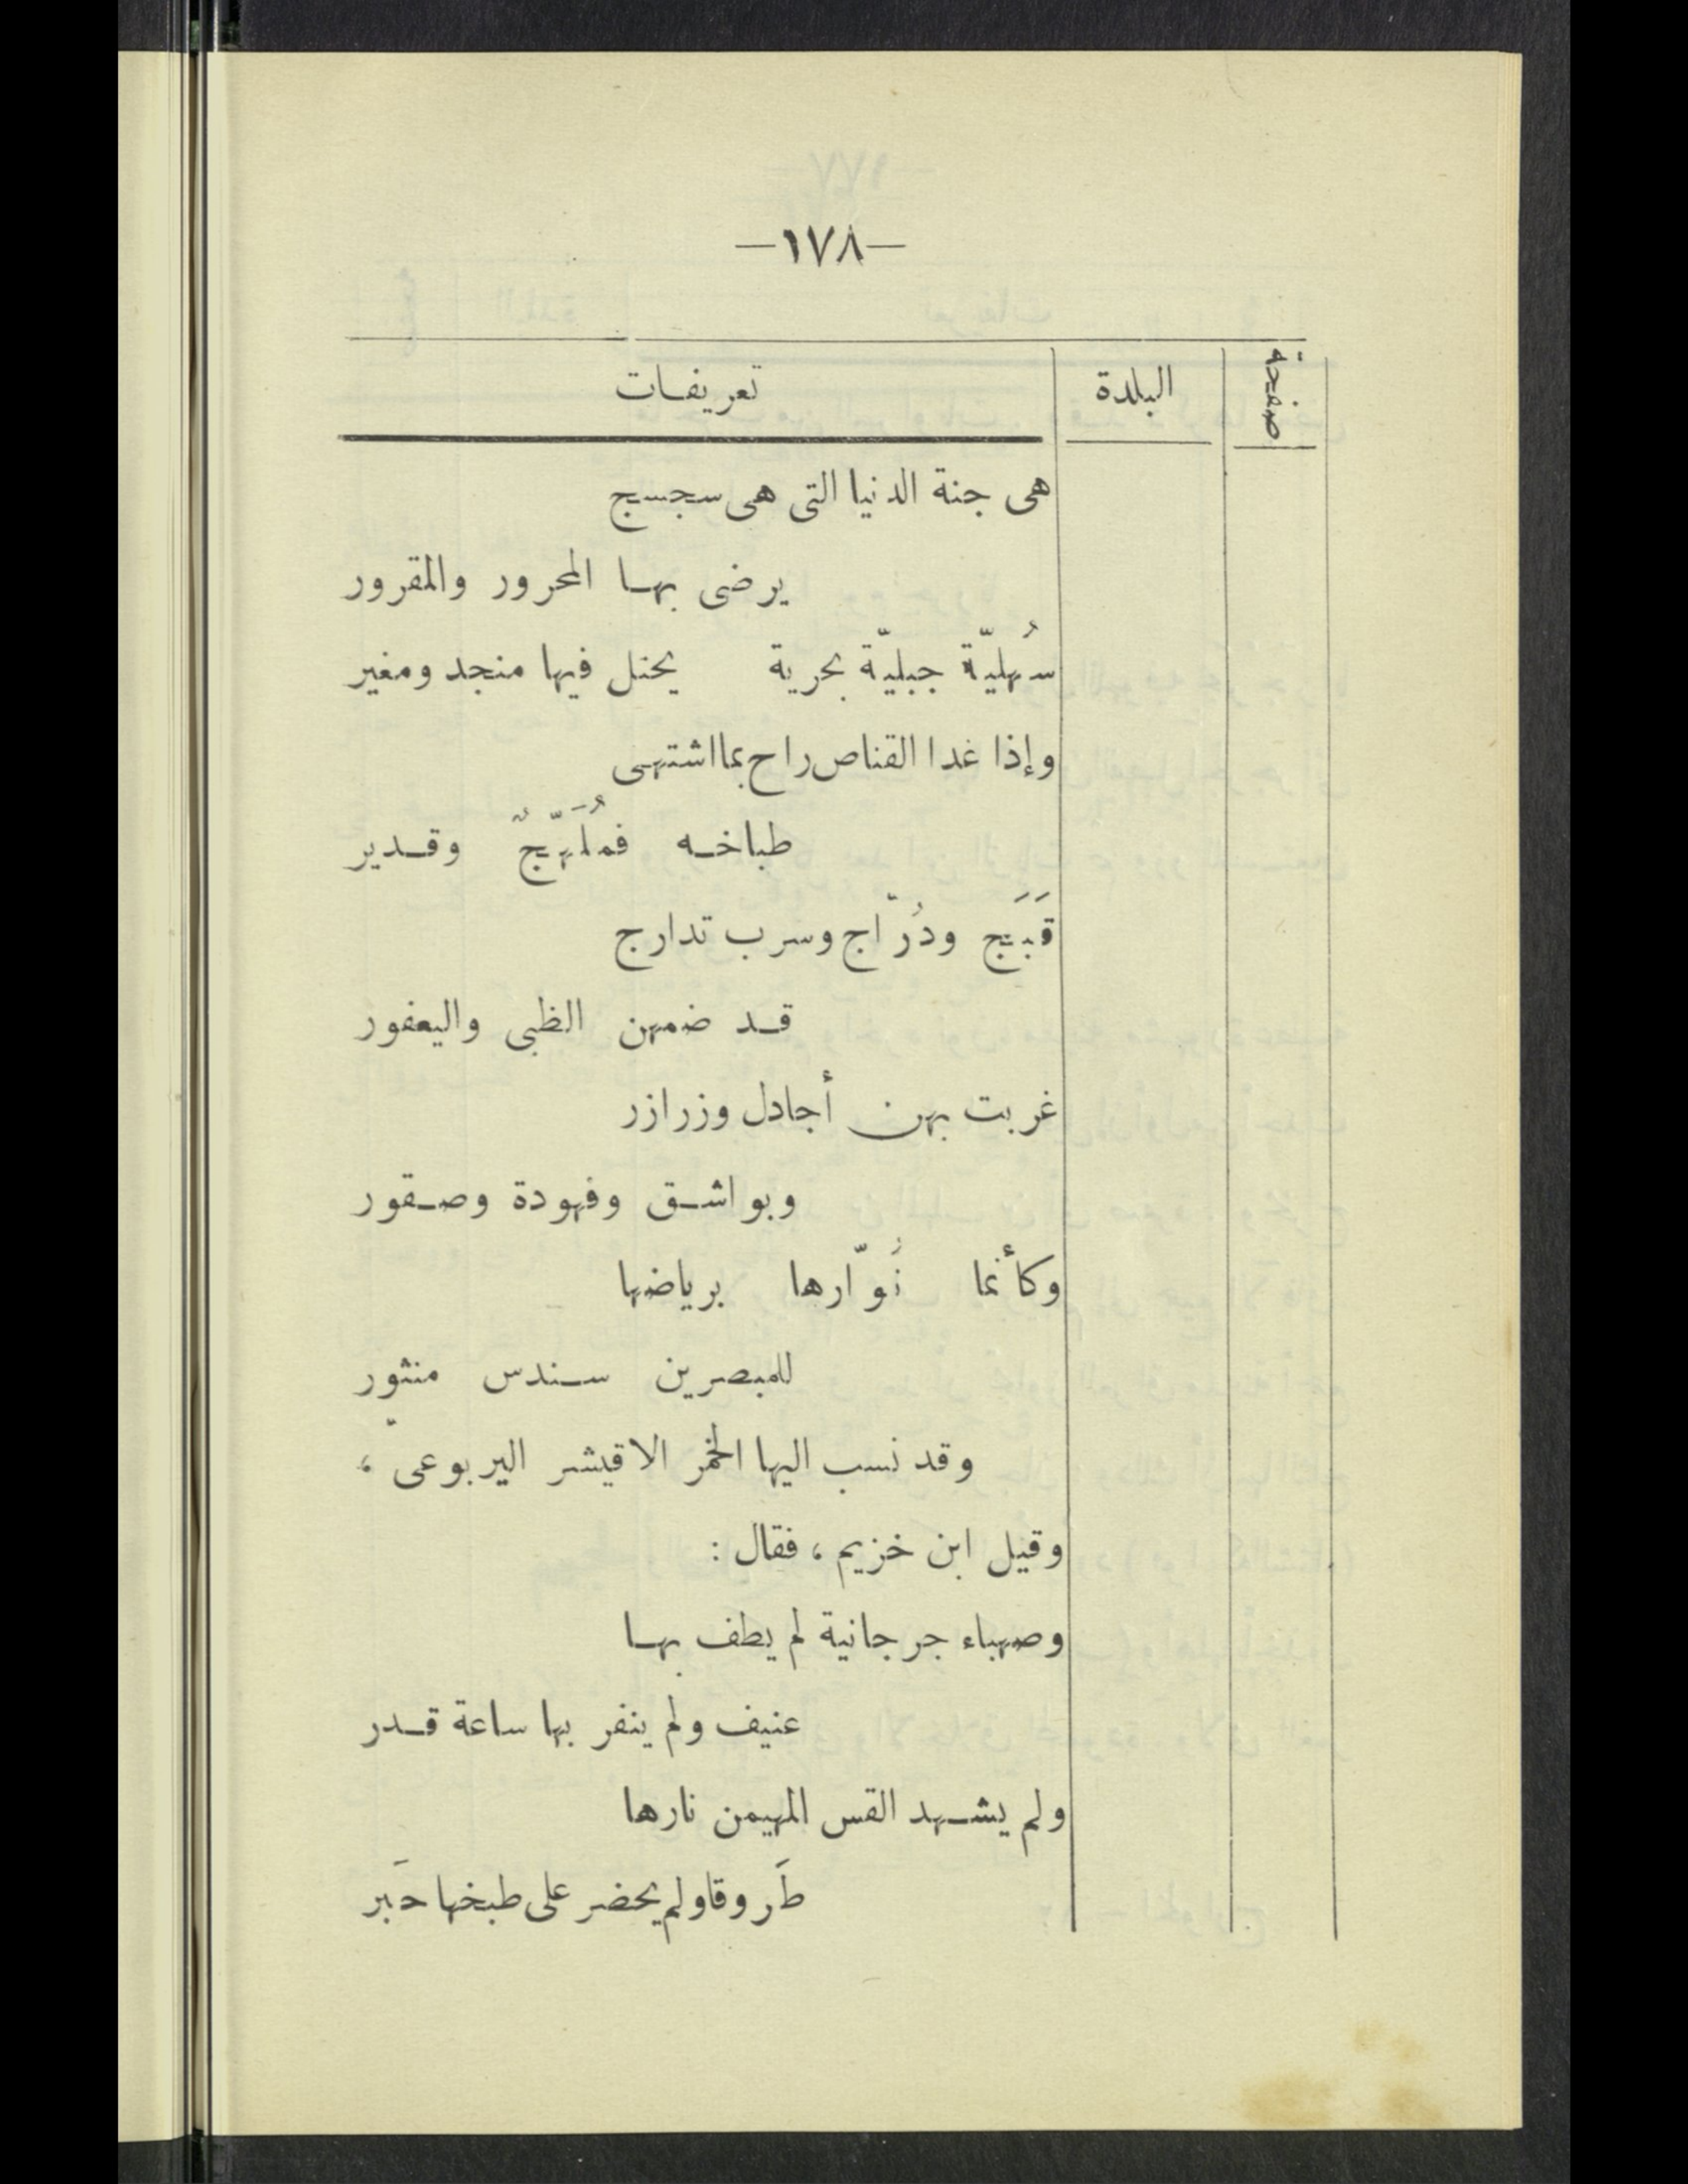 —١٧٨—
صفحة البلدة تعريفات
هى جنة الدنيا التى هى سجسج
يرضى بها المحرور والمقرور
سُهليّة جبليّة بحرية يحتل فيها منجد ومغير
وإذا غدا القناص راح بما اشتهى
طباخه فمُلَهّجٌ وقدير
قَبَج ودُرّاج وسرب تدارج
قد ضمهن الظبى واليعفور
غربت بهن أجادل وزرازر
وبواشق وفهودة وصقور
وكأنما نُوّارها برياضها
للمبصرين سندس منثور
وقد نسب اليها الخمر الاقيشر اليربوعىّ ،
وقيل ابن خزيم ، فقال :
وصهباء جرجانية لم يطف بها
عنيف ولم ينفر بها ساعة قدر
ولم يشهد القس المهيمن نارها
طَروقا ولم يحضر على طبخها حَبر